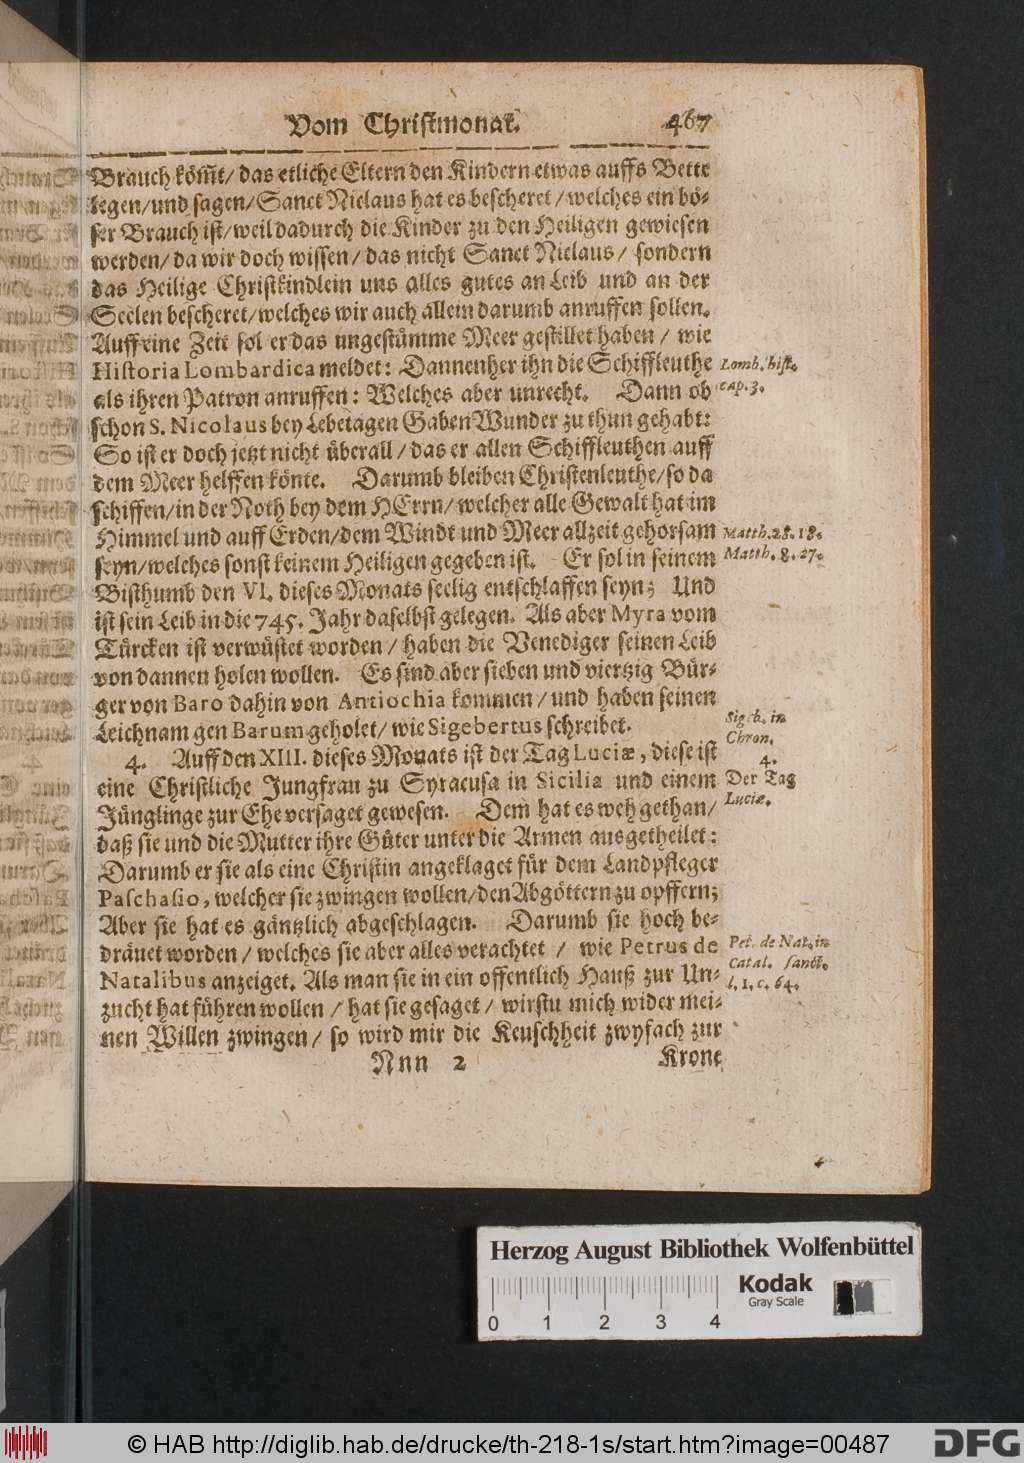 Vom Christmonat. 467
Brauch köm̃t/ das etliche Eltern den Kindern etwas auffs Bette
legen/und sagen/Sanct Niclaus hat es bescheret/welches ein bö-
ser Brauch ist/weil dadurch die Kinder zu den Heiligen gewiesen
werden/da wir doch wissen/das nicht Sanct Niclaus/ sondern
das Heilige Christkindlein uns alles gutes an Leib und an der
Seelen bescheret/welches wir auch allein darumb anruffen sollen.
Auff eine Zeit sol er das ungestümme Meer gestillet haben/ wie
Historia Lombardica meldet: Dannenher ihn die Schiffleuthe
als ihren Patron anruffen: Welches aber unrecht. Dann ob
schon S. Nicolaus bey Lebetagen Gaben Wunder zu thun gehabt:
So ist er doch jetzt nicht überall/das er allen Schiffleuthen auff
dem Meer helffen könte. Darumb bleiben Christenleuthe/so da
schiffen/in der Noth bey dem HErrn/welcher alle Gewalt hat im
Himmel und auff Erden/dem Windt und Meer allzeit gehorsam
seyn/welches sonst keinem Heiligen gegeben ist. Er sol in seinem
Bisthumb den VI. dieses Monats seelig entschlaffen seyn; Und
ist sein Leib in die 745. Jahr daselbst gelegen. Als aber Myra vom
Türcken ist verwüstet worden/ haben die Venediger seinen Leib
von dannen holen wollen. Es sind aber sieben und viertzig Bür-
ger von Baro dahin von Antiochia kommen/und haben seinen
Leichnam gen Barum geholet/wie Sigebertus schreibet.
4. Auff den XIII. dieses Monats ist der Tag Luciæ, diese ist
eine Christliche Jungfrau zu Syracusa in Sicilia und einem
Jünglinge zur Ehe versaget gewesen. Dem hat es weh gethan/
daß sie und die Mutter ihre Güter unter die Armen ausgetheilet:
Darumb er sie als eine Christin angeklaget für dem Landpfleger
Paschasio, welcher sie zwingen wollen/den Abgöttern zu opffern;
Aber sie hat es gäntzlich abgeschlagen. Darumb sie hoch be-
dräuet worden/welches sie aber alles verachtet/ wie Petrus de
Natalibus anzeiget. Als man sie in ein offentlich Hauß zur Un-
zucht hat führen wollen/hat sie gesaget/wirstu mich wider mei-
nen Willen zwingen/ so wird mir die Keuschheit zwyfach zur
Nnn 2 Krone
Lomb. hist.
cap. 3.
Matth. 28. 18.
Matth. 8. 27.
Sigeb. in
Chron.
4.
Der Tag
Luciæ.
Pet. de Nat. in
Catal. sanct.
l. 1. c. 64.
Herzog August Bibliothek Wolfenbüttel
Kodak
Gray Scale
0 1 2 3 4
© HAB http://diglib.hab.de/drucke/th-218-1s/start.htm?image=00487
DFG